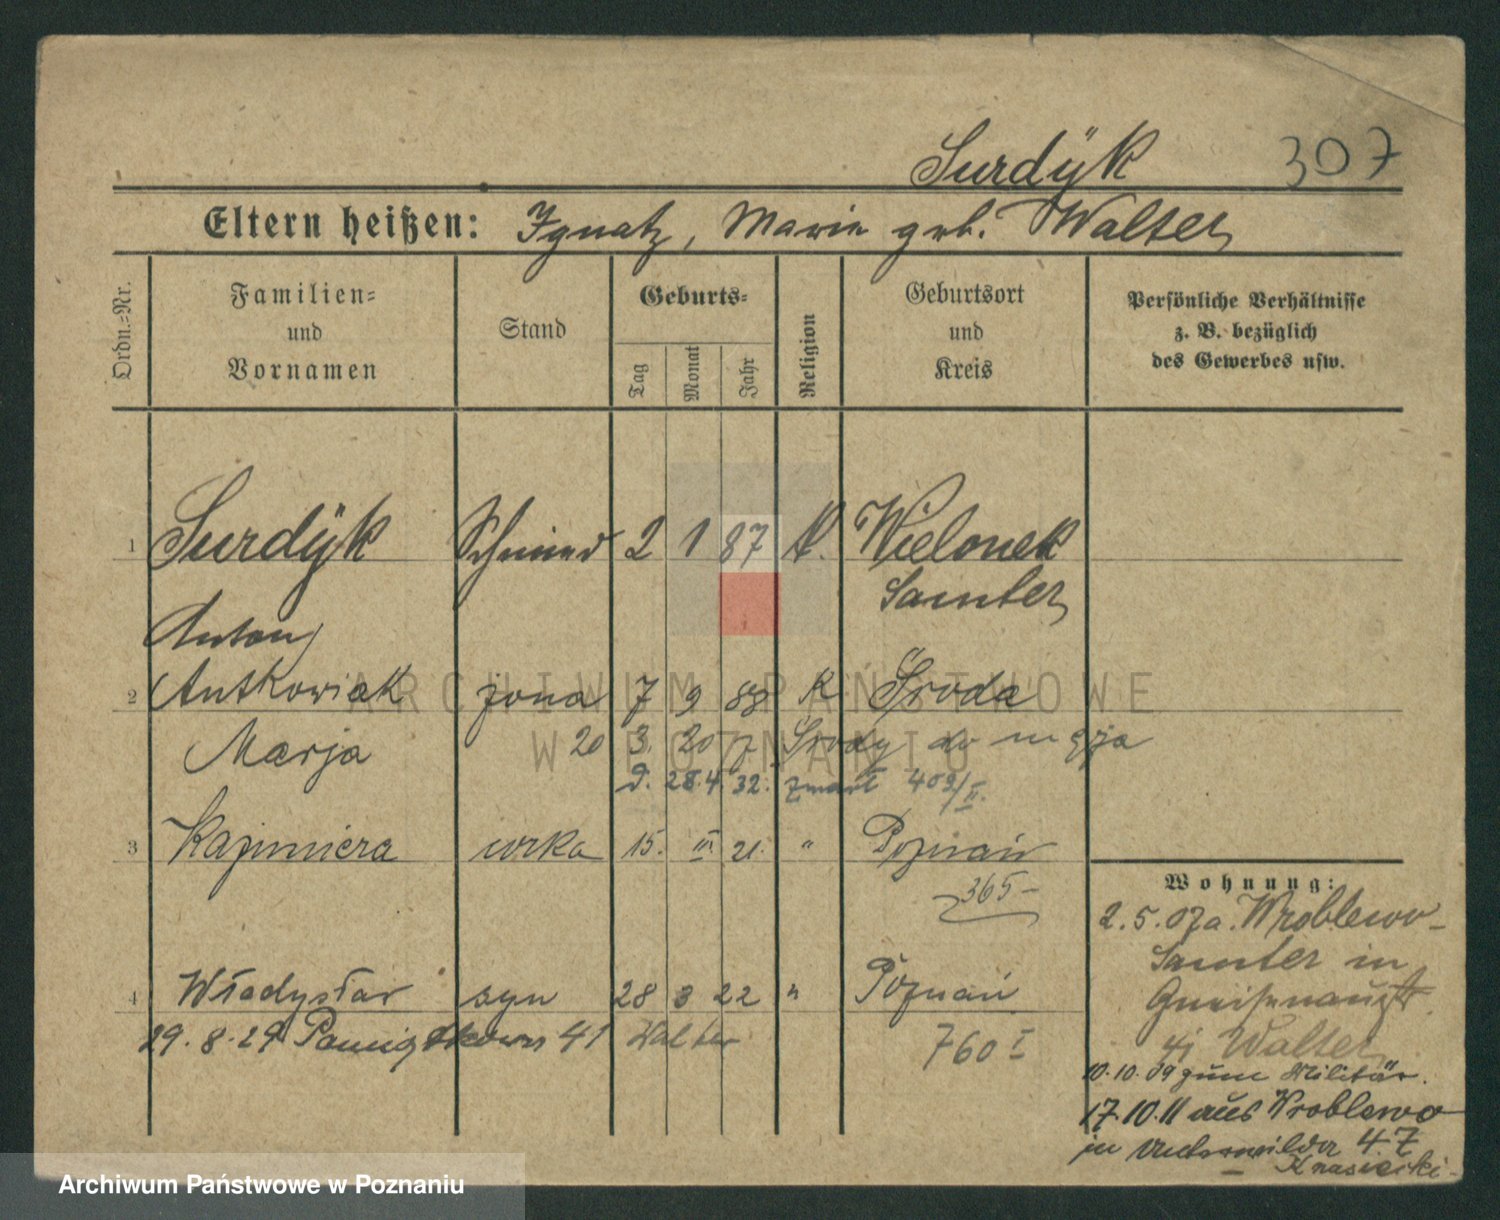 Surdÿk 307
Eltern heißen: Ignatz, Marie geb. Walter
Ordn.=Nr.
Familien=
und
Vornamen
Stand
Geburts=
Tag
Monat
Jahr
Religion
Geburtsort
und
Kreis
Persönliche Verhältnisse
z. B. bezüglich
des Gewerbes usw.
1 Surdÿk Schmied 2 1 87 k. Wielonek
Samter
Anton
2 Antkowiak żona 7 9 88 K Środa
Marja 20 3. 20 z Środy do męża
d. 28.4.32. zmarł 409/II.
3 Kazimiera córka 15. III. 21. " Poznań
365-
4 Władysław syn 28 3 22 " Poznań
29. 8. 29 41 Walter
760 I
Wohnung:
2. 5. 07 a. Wroblewo-
Samter in
Gneisenaustr.
41 Walter
10.10.09 zum Militär.
17.10.11 aus Wroblewo
in 4. Z
Krasicki-
ARCHIWUM PAŃSTWOWE
W POZNANIU
Archiwum Państwowe w Poznaniu